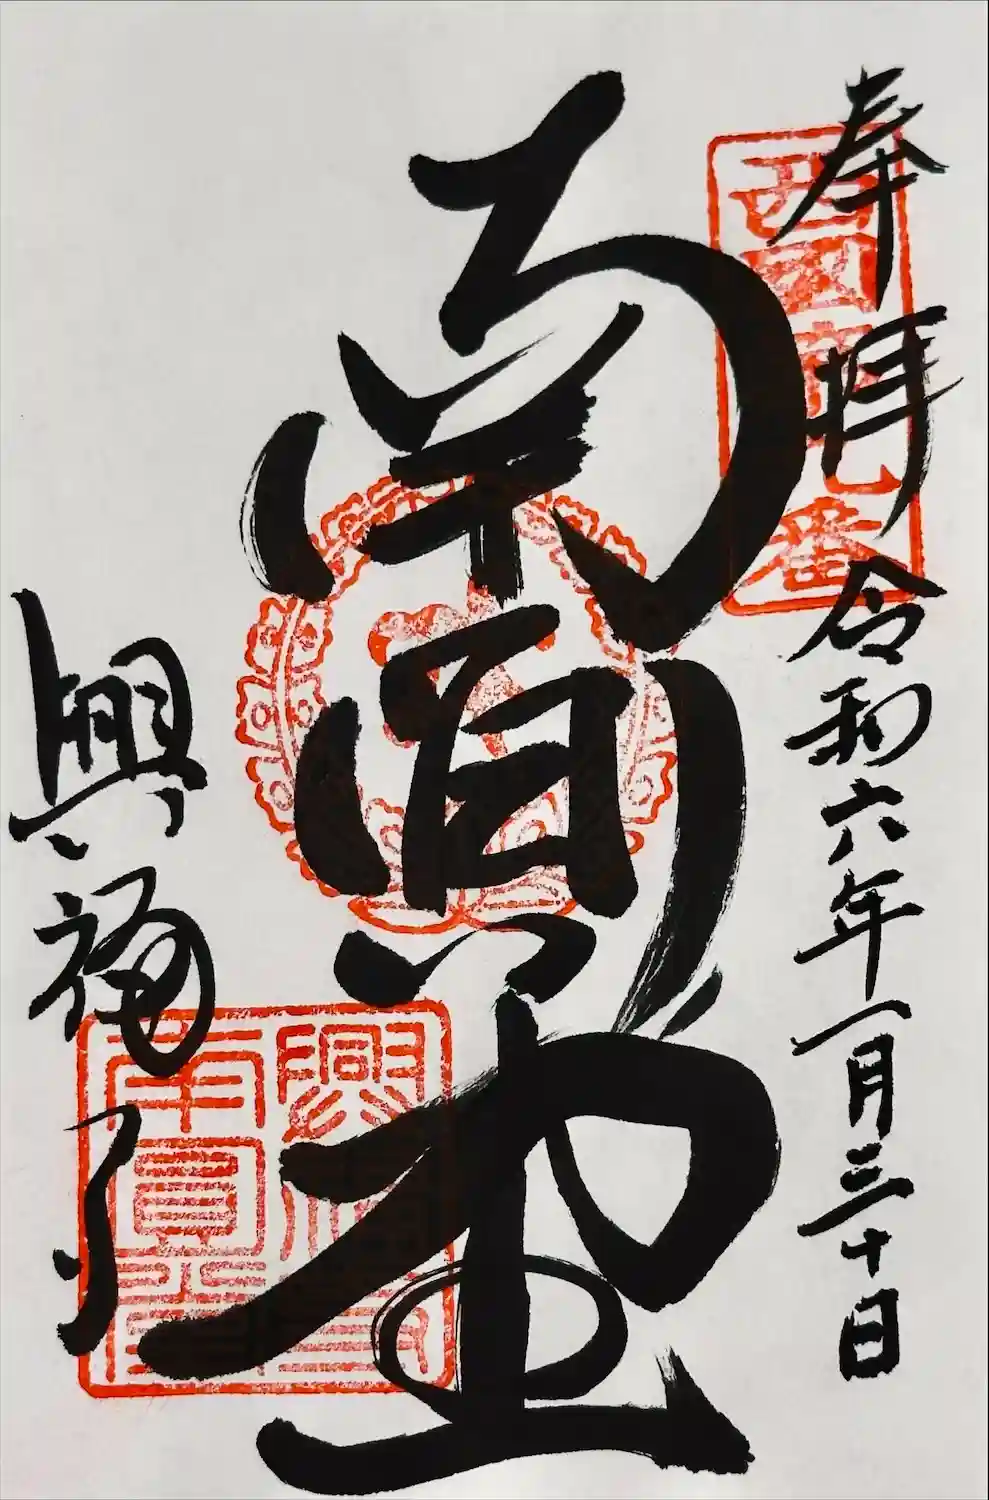 奉拝
令和六年一月三十日
西國第九番
南円堂
興福寺
興福寺南圓堂印